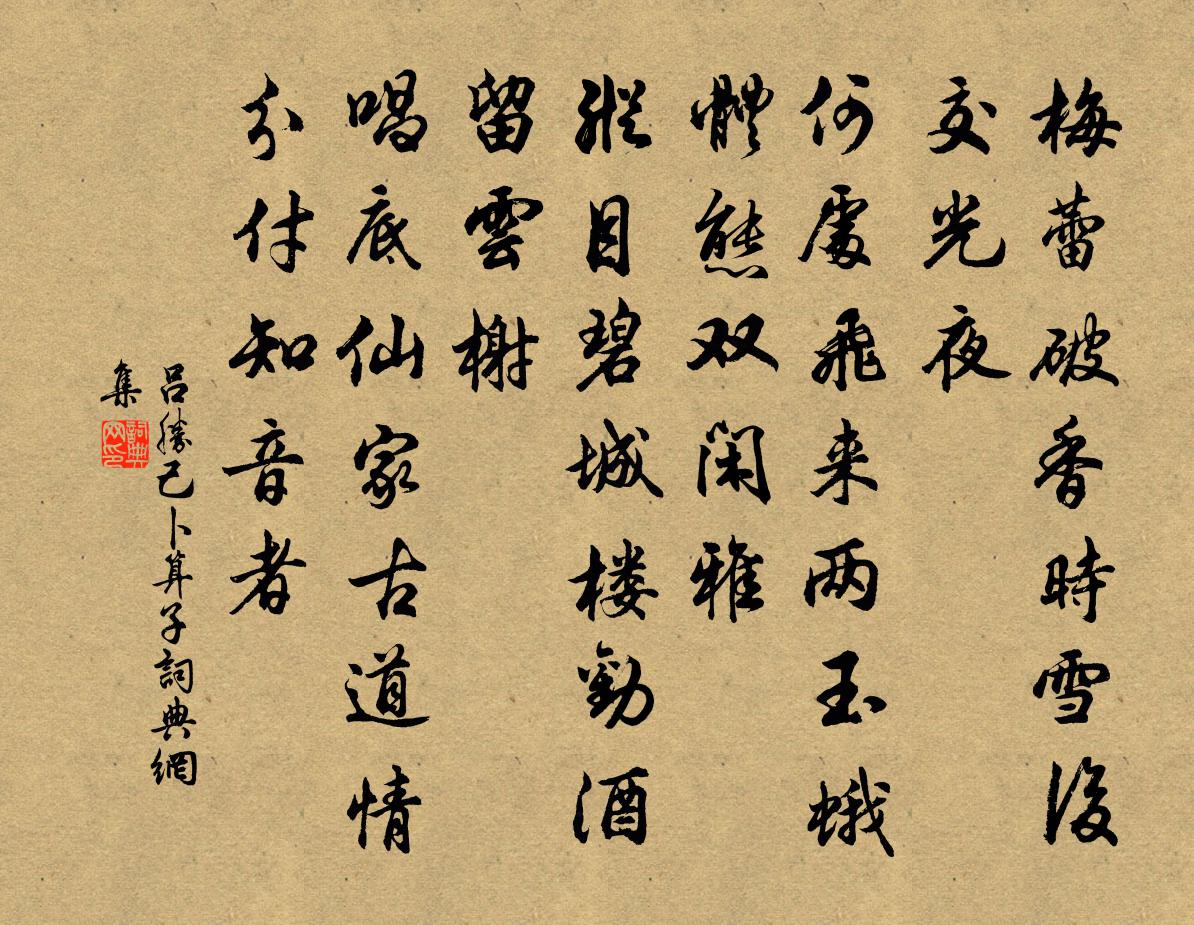 梅蕾破香時雪後
交光夜
何處飛来两玉蛾
體態双閑雅
縱目碧城楼勸酒
留雲榭
唱底仙家古道情
分付知音者
呂勝己卜算子詞典網
集
詞典网印